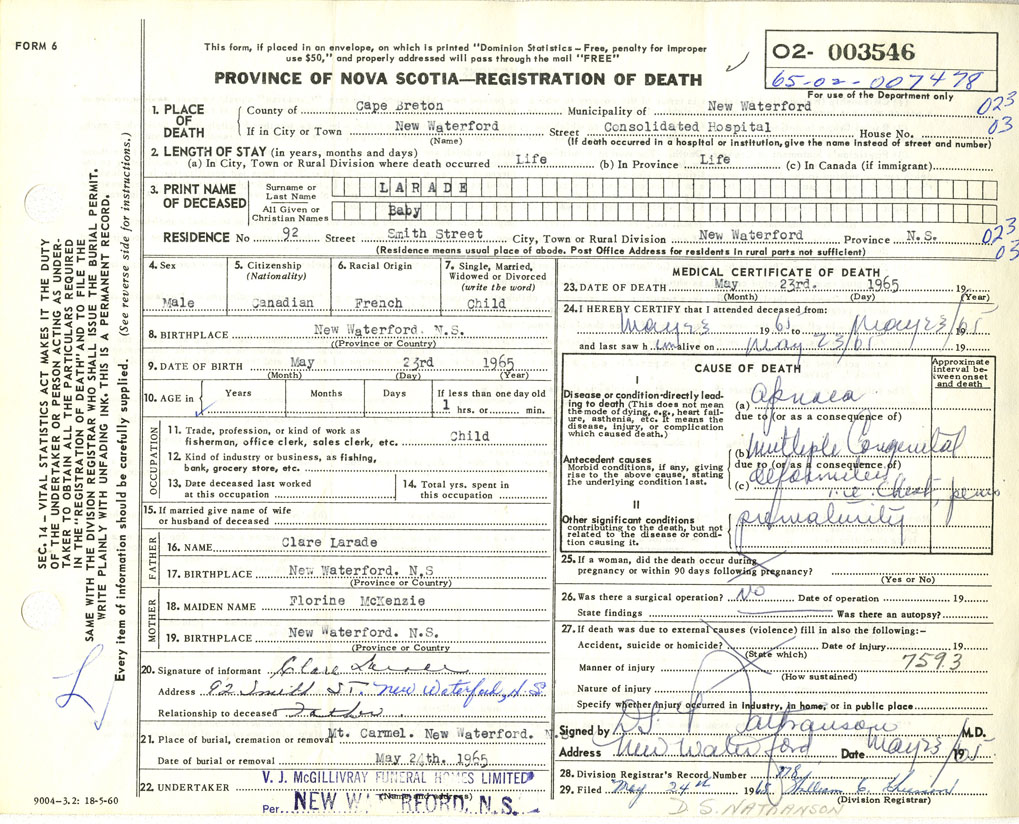 FORM 6
This form, if placed in an envelope, on which is printed "Dominion Statistics – Free, penalty for improper
use $50," and properly addressed will pass through the mail "FREE"
PROVINCE OF NOVA SCOTIA—REGISTRATION OF DEATH
02- 003546
65-02-007478
For use of the Department only
SEC. 14 – VITAL STATISTICS ACT MAKES IT THE DUTY
OF THE UNDERTAKER OR PERSON ACTING AS UNDER-
TAKER TO OBTAIN ALL THE PARTICULARS REQUIRED
IN THE "REGISTRATION OF DEATH" AND TO FILE THE
SAME WITH THE DIVISION REGISTRAR WHO SHALL ISSUE THE BURIAL PERMIT.
WRITE PLAINLY WITH UNFADING INK. THIS IS A PERMANENT RECORD.
Every item of information should be carefully supplied. (See reverse side for instructions.)
1. PLACE OF DEATH
County of Cape Breton Municipality of New Waterford 023
If in City or Town New Waterford Street Consolidated Hospital House No. 03
(Name) (If death occurred in a hospital or institution, give the name instead of street and number)
2. LENGTH OF STAY (in years, months and days)
(a) In City, Town or Rural Division where death occurred Life (b) In Province Life (c) In Canada (if immigrant)
3. PRINT NAME OF DECEASED
Surname or Last Name LARADE
All Given or Christian Names Baby
RESIDENCE No 92 Street Smith Street City, Town or Rural Division New Waterford Province N.S. 023
03
(Residence means usual place of abode. Post Office Address for residents in rural parts not sufficient)
4. Sex
Male
5. Citizenship
(Nationality)
Canadian
6. Racial Origin
French
7. Single, Married,
Widowed or Divorced
(write the word)
Child
8. BIRTHPLACE New Waterford. N.S.
(Province or Country)
9. DATE OF BIRTH May 23rd 1965
(Month) (Day) (Year)
10. AGE in Years Months Days If less than one day old
1 hrs. or min.
OCCUPATION
11. Trade, profession, or kind of work as
fisherman, office clerk, sales clerk, etc. Child
12. Kind of industry or business, as fishing,
bank, grocery store, etc.
13. Date deceased last worked
at this occupation
14. Total yrs. spent in
this occupation
15. If married give name of wife
or husband of deceased
FATHER
16. NAME Clare Larade
17. BIRTHPLACE New Waterford. N,S
(Province or Country)
MOTHER
18. MAIDEN NAME Florine McKenzie
19. BIRTHPLACE New Waterford. N.S.
(Province or Country)
20. Signature of informant Clare Larade
Address 92 Smith St. New Waterford, N.S.
Relationship to deceased Father
21. Place of burial, cremation or removal Mt. Carmel. New Waterford. N.S.
Date of burial or removal May 24th. 1965
22. UNDERTAKER V. J. McGILLIVRAY FUNERAL HOMES LIMITED
(Name and address)
Per NEW WATERFORD, N.S.
9004–3.2: 18-5-60
MEDICAL CERTIFICATE OF DEATH
23. DATE OF DEATH May 23rd. 1965 19
(Month) (Day) (Year)
24. I HEREBY CERTIFY that I attended deceased from:
May 23 1965 to May 23/ 1965
and last saw h im alive on May 23/65 19
CAUSE OF DEATH
Approximate
interval be-
tween onset
and death
I
Disease or condition directly lead-
ing to death (This does not mean
the mode of dying, e.g., heart fail-
ure, asthenia, etc. It means the
disease, injury, or complication
which caused death.)
(a) Apnoea
due to (or as a consequence of)
Antecedent causes
Morbid conditions, if any, giving
rise to the above cause, stating
the underlying condition last.
(b) Multiple Congenital
due to (or as a consequence of)
deformities
(c) i.e. Chest, penis
II
Other significant conditions
contributing to the death, but not
related to the disease or condi-
tion causing it.
prematurity
25. If a woman, did the death occur during
pregnancy or within 90 days following pregnancy?
(Yes or No)
26. Was there a surgical operation? No Date of operation 19
State findings Was there an autopsy?
27. If death was due to external causes (violence) fill in also the following:–
Accident, suicide or homicide? Date of injury 19
(State which)
7593
Manner of injury
(How sustained)
Nature of injury
Specify whether injury occurred in industry, in home, or in public place
Signed by D.S. Nathanson M.D.
Address New Waterford Date May 23/ 1965
28. Division Registrar's Record Number
29. Filed May 24th 1965 William C.
(Division Registrar)
D S. NATHANSON